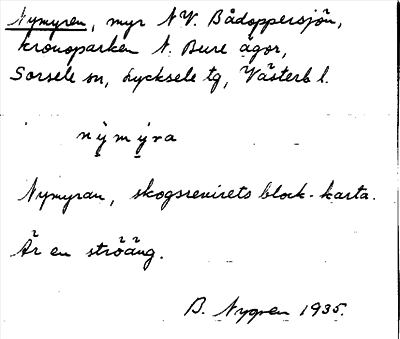 Nymyren, myr N.V. Bådoppersjön,
kronoparken N. Bure ägor,
Sorsele sn, Lycksele tg, Västerb l.
nỳmýra
Nymyran, skogsrevirets block-karta.
Är en ströäng.
B. Nygren 1935.